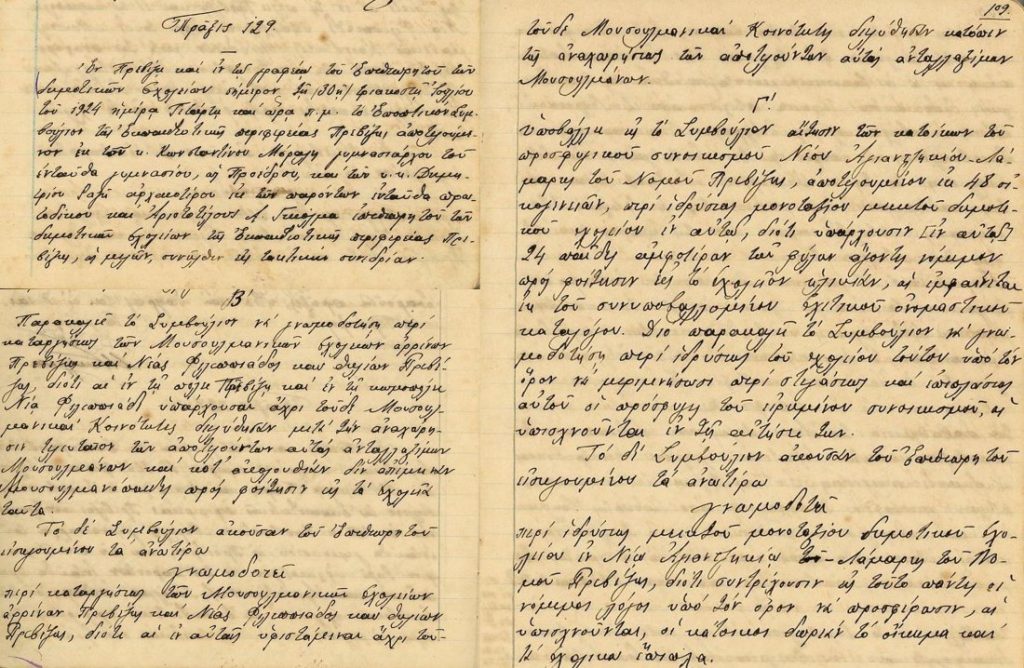 Πράξις 129.
Ἐν Πρεβέζῃ καὶ ἐν τῷ γραφείῳ τοῦ Ἐπιθεωρητοῦ τῶν
δημοτικῶν σχολείων σήμερον τῇ (30ῃ) τριακοστῇ Ἰουλίου
τοῦ 1924 ἡμέρᾳ Τετάρτῃ καὶ ὥρᾳ π.μ. τὸ Ἐποπτικὸν Συμ-
βούλιον τῆς ἐκπαιδευτικῆς περιφερείας Πρεβέζης ἀποτελούμε-
νον ἐκ τοῦ κ. Κωνσταντίνου Μόραλη γυμνασιάρχου τοῦ
ἐνταῦθα γυμνασίου, ὡς Προέδρου, καὶ τῶν κ.κ. Δημη-
τρίου ἀρχαιοτέρου ἐκ τῶν παρόντων ἐνταῦθα πρω-
τοδίκου καὶ Ἀριστοτέλους Λ. Γκούμα ἐπιθεωρητοῦ τῶν
δημοτικῶν σχολείων τῆς ἐκπαιδευτικῆς περιφερείας Πρε-
βέζης, ὡς μελῶν, συνῆλθεν εἰς τακτικὴν συνεδρίαν.
Β'
Παρακαλεῖ τὸ Συμβούλιον νὰ γνωμοδοτήσῃ περὶ
καταργήσεως τῶν Μουσουλμανικῶν σχολείων ἀρρένων
Πρεβέζης καὶ Νέας Φιλιππιάδος καὶ θηλέων Πρεβέ-
ζης, διότι αἱ ἐν τῇ πόλει Πρεβέζῃ καὶ ἐν τῇ κωμοπόλει
Νέᾳ Φιλιππιάδι ὑπάρχουσαι ἄχρι τοῦδε Μουσουλ-
μανικαὶ Κοινότητες διελύθησαν μετὰ τὴν ἀναχώρη-
σιν τελευταῖον τῶν ἀποτελούντων αὐτὰς ἀνταλλαξίμων
Μουσουλμάνων καὶ κατ' ἀκολουθίαν δὲν ἀπέμειναν
Μουσουλμανόπαιδες πρὸς φοίτησιν εἰς τὰ σχολεῖα
ταῦτα.
Τὸ δὲ Συμβούλιον ἀκοῦσαν τοῦ Ἐπιθεωρητοῦ
εἰσηγουμένου τὰ ἀνωτέρω
γνωμοδοτεῖ
περὶ καταργήσεως τῶν Μουσουλμανικῶν σχολείων
ἀρρένων Πρεβέζης καὶ Νέας Φιλιππιάδος καὶ θηλέων
Πρεβέζης, διότι αἱ ἐν αὐταῖς ὑφιστάμεναι ἄχρι τοῦ-
109.
τοῦδε Μουσουλμανικαὶ Κοινότητες διελύθησαν κατόπιν
τῆς ἀναχωρήσεως τῶν ἀποτελούντων αὐτὰς ἀνταλλαξίμων
Μουσουλμάνων.
Γ'
ὑποβάλλει εἰς τὸ Συμβούλιον αἴτησιν τῶν κατοίκων τοῦ
προσφυγικοῦ συνοικισμοῦ Νέου -Λά-
μαρης τοῦ Νομοῦ Πρεβέζης, ἀποτελουμένου ἐκ 48 οἰ-
κογενειῶν, περὶ ἱδρύσεως μονοταξίου μεικτοῦ δημοτι-
κοῦ σχολείου ἐν αὐτῷ, διότι ὑπάρχουσιν [ἐν αὐτῷ]
24 παῖδες ἀμφοτέρων τῶν φύλων ἄγοντες νόμιμον
πρὸς φοίτησιν εἰς τὸ σχολεῖον ἡλικίαν, ὡς ἐμφαίνεται
ἐκ τοῦ συνυποβαλλομένου σχετικοῦ ὀνομαστικοῦ
καταλόγου. Διὸ παρακαλεῖ τὸ Συμβούλιον νὰ γνω-
μοδοτήσῃ περὶ ἱδρύσεως τοῦ σχολείου τούτου ὑπὸ τὸν
ὅρον νὰ μεριμνήσωσι περὶ στεγάσεως καὶ ἐπιπλώσεως
αὐτοῦ οἱ πρόσφυγες τοῦ εἰρημένου συνοικισμοῦ, ὡς
ὑπισχνοῦνται ἐν τῇ αἰτήσει των.
Τὸ δὲ Συμβούλιον ἀκοῦσαν τοῦ Ἐπιθεωρητοῦ
εἰσηγουμένου τὰ ἀνωτέρω
γνωμοδοτεῖ
περὶ ἱδρύσεως μεικτοῦ μονοταξίου δημοτικοῦ σχο-
λείου ἐν Νέᾳ - Λάμαρης τοῦ Νο-
μοῦ Πρεβέζης, διότι συντρέχουσιν εἰς τοῦτο πάντες οἱ
νόμιμοι λόγοι ὑπὸ τὸν ὅρον νὰ προσφέρωσιν, ὡς
ὑπισχνοῦνται, οἱ κάτοικοι δωρεὰν τὸ οἴκημα καὶ
τὰ σχολικὰ ἔπιπλα.